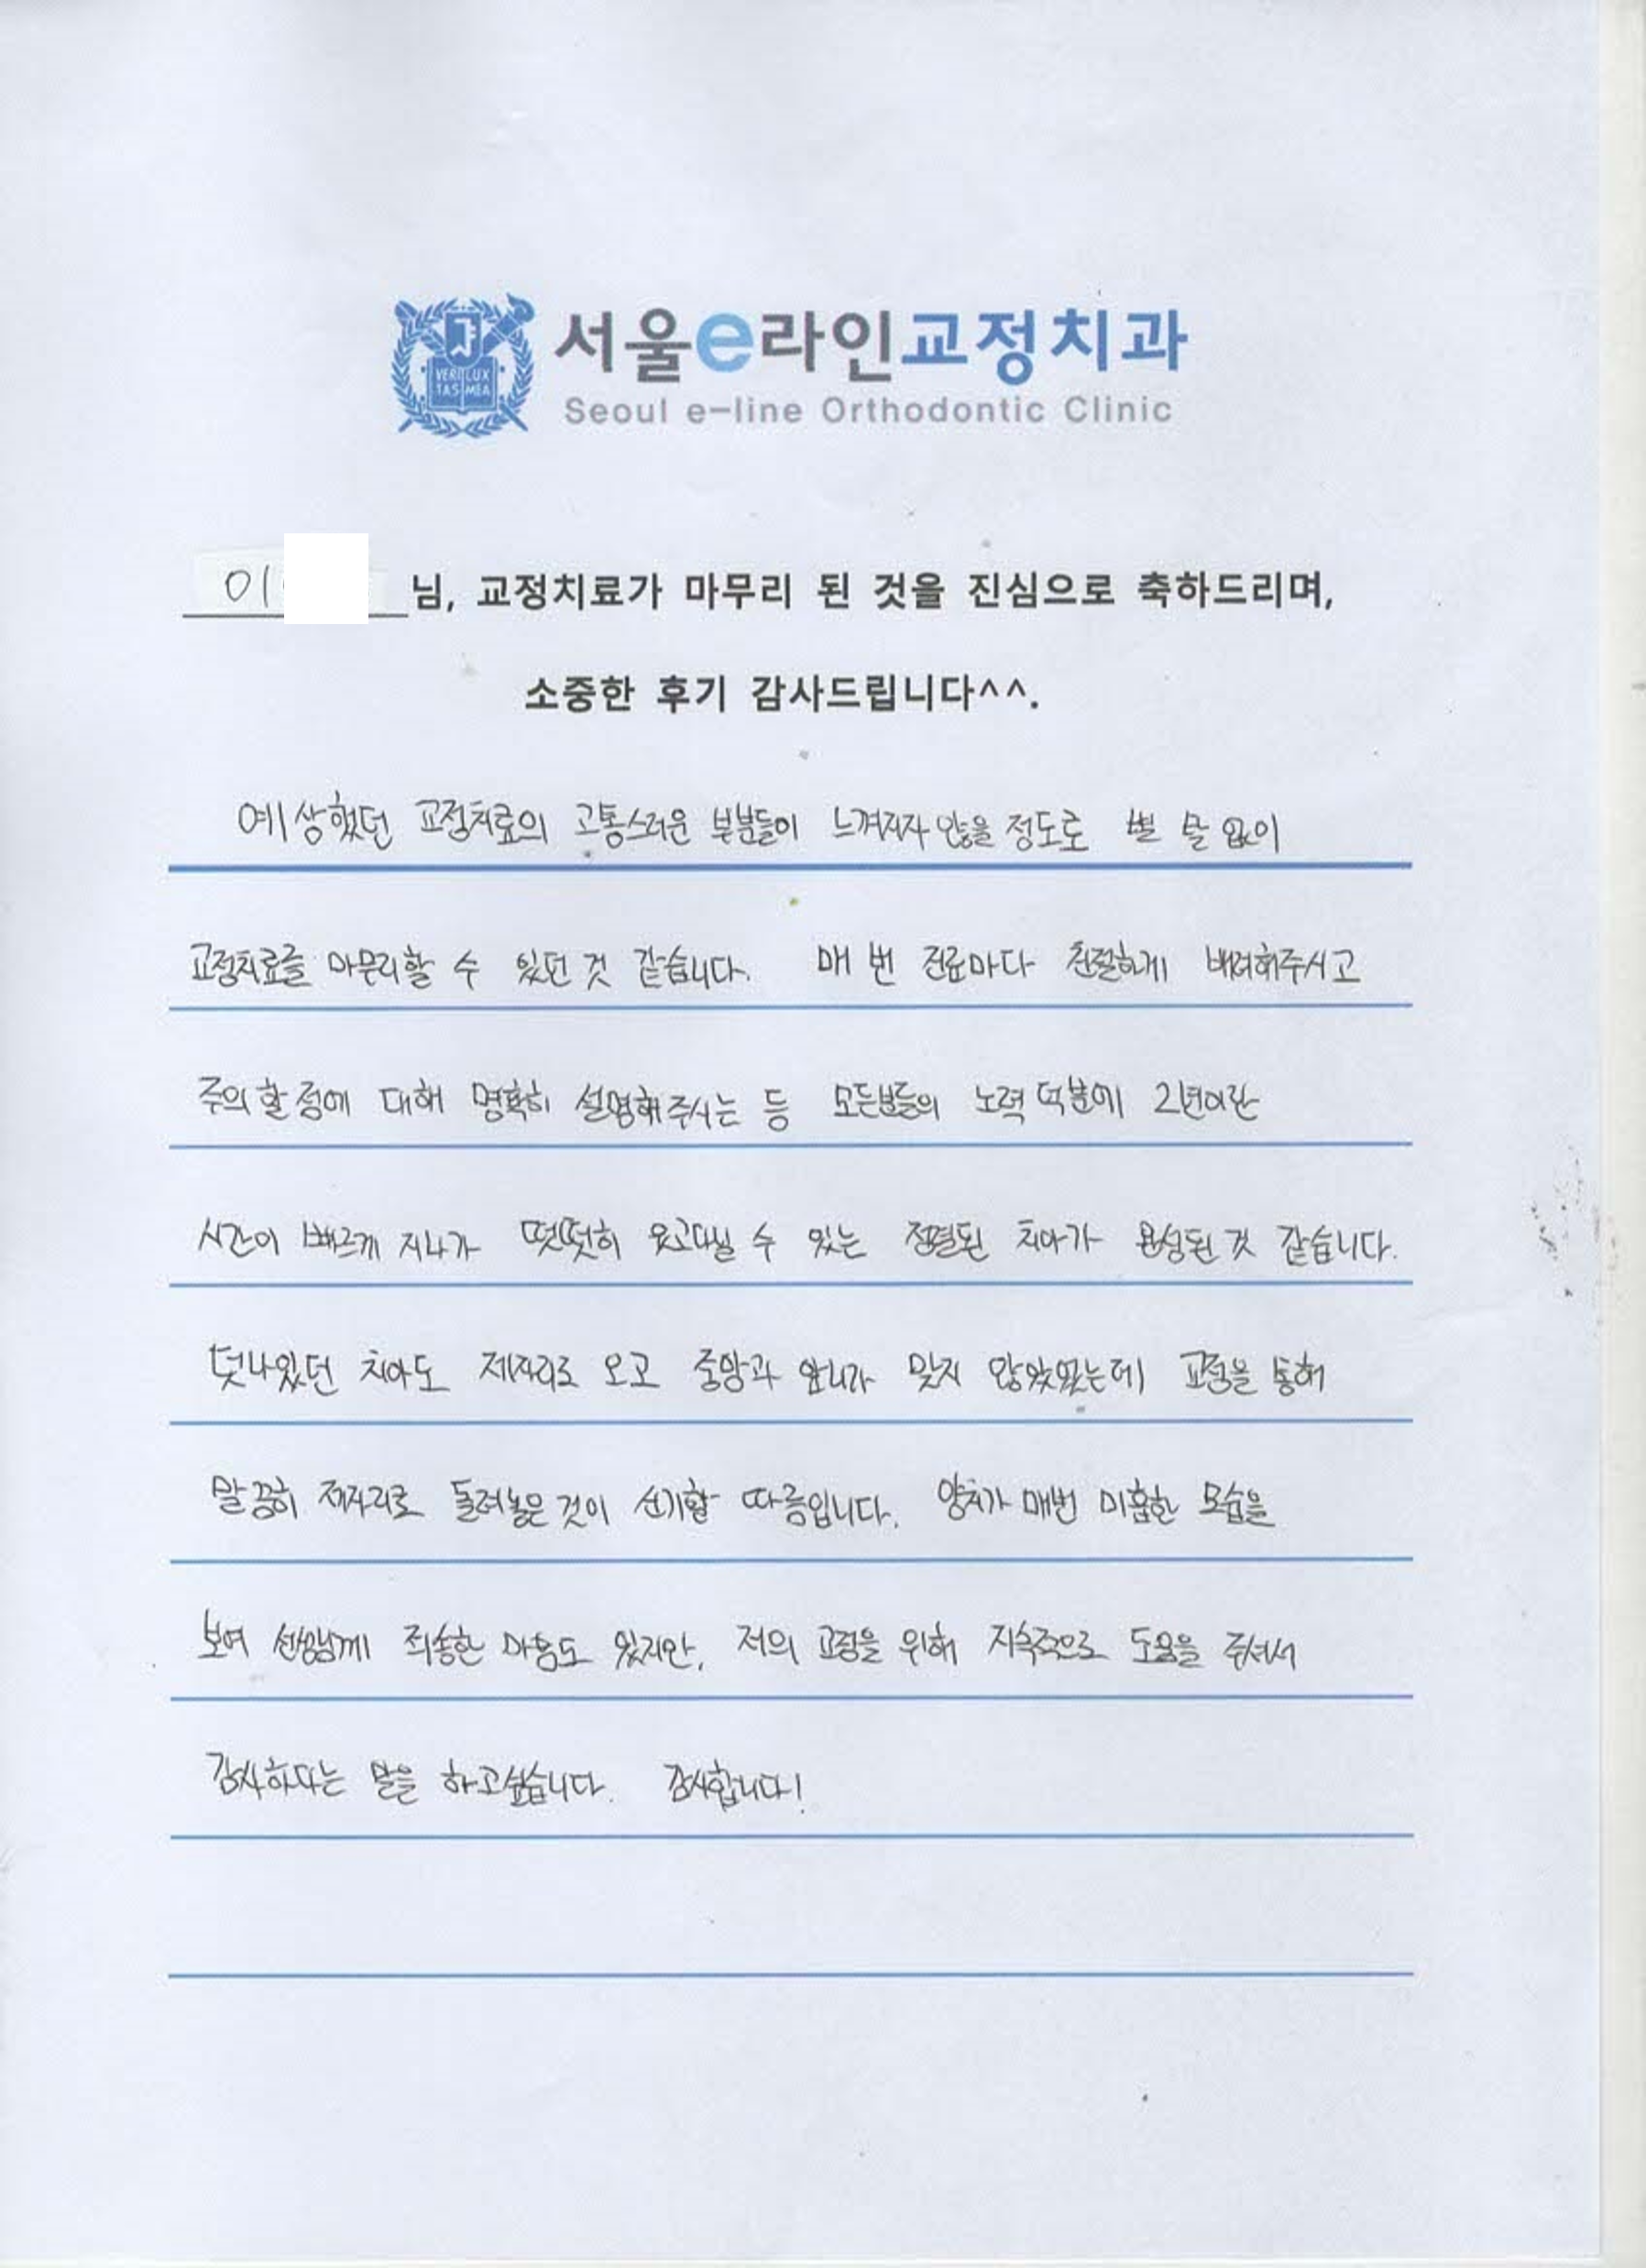 VERI LUX
TAS MEA
서울e라인교정치과
Seoul e-line Orthodontic Clinic
이 님, 교정치료가 마무리 된 것을 진심으로 축하드리며,
소중한 후기 감사드립니다^^.
예상했던 교정치료의 고통스러운 부분들이 느껴지지 않을 정도로 별 탈 없이
교정치료를 마무리할 수 있던 것 같습니다. 매 번 진료마다 친절하게 배려해주시고
주의할 점에 대해 명확히 설명해주시는 등 모든분들의 노력 덕분에 2년이란
시간이 빠르게 지나가 떳떳히 웃고다닐 수 있는 정렬된 치아가 완성된 것 같습니다.
덧나있던 치아도 제자리로 오고 중앙과 앞니가 맞지 않았었는데 교정을 통해
말끔히 제자리로 돌려놓은 것이 신기할 따름입니다. 양치가 매번 미흡한 모습을
보여 선생님께 죄송한 마음도 있지만, 저의 교정을 위해 지속적으로 도움을 주셔서
감사하다는 말을 하고싶습니다. 감사합니다!